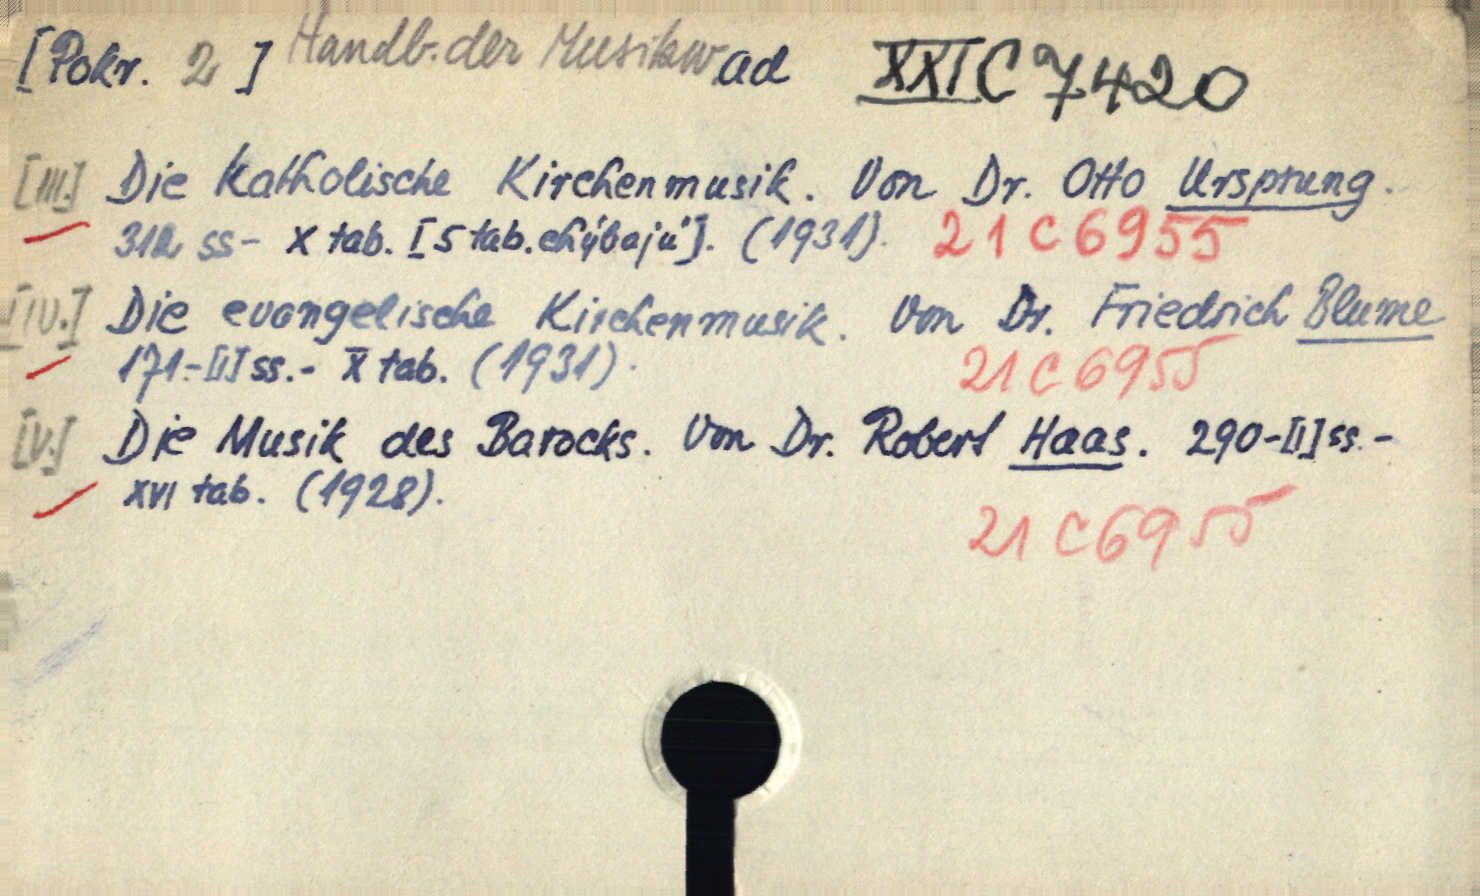 [Pokr. 2] Handb. der Musikw. ad XXI C 7420
[III.] Die katholische Kirchenmusik. Von Dr. Otto Ursprung.
312 ss - X tab. [5 tab. chýbajú]. (1931). 21 C 6955
[IV.] Die evangelische Kirchenmusik. Von Dr. Friedrich Blume
171-[I] ss. - X tab. (1931). 21 C 6955
[V.] Die Musik des Barocks. Von Dr. Robert Haas. 290-[I] ss. -
XVI tab. (1928).
21 C 6955